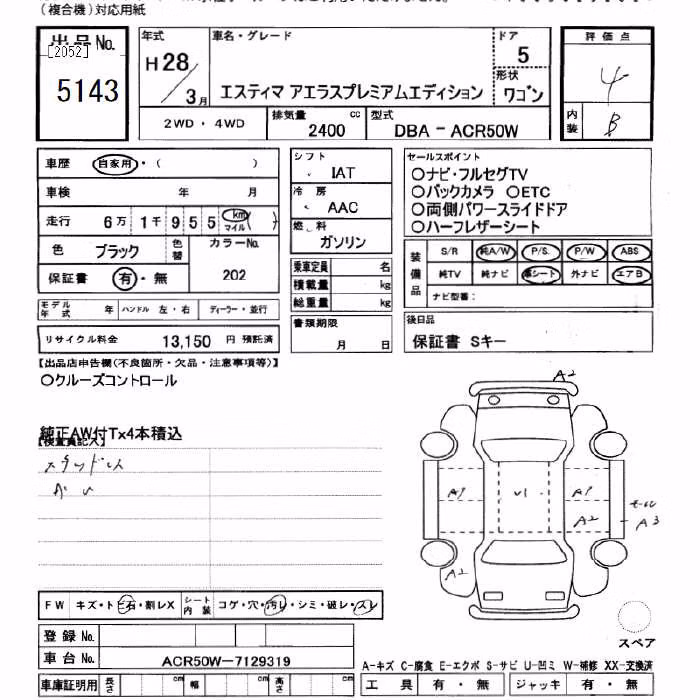 (複合機)対応用紙
出品No.
[2052]
5143
年式
H28
3月
車名・グレード
エスティマ アエラスプレミアムエディション
ドア
5
形状
ワゴン
評価点
4
内装
B
2WD・4WD
排気量
2400
cc
型式
DBA-ACR50W
車歴
自家用・( )
車検
年 月
走行
6万 1千 9 5 5
km マイル ( )
色
ブラック
色替
カラーNo.
202
保証書
有・無
モデル年式
年
ハンドル 左・右
ディーラー・並行
リサイクル料金
13,150 円 預託済
シフト
IAT
冷房
AAC
燃料
ガソリン
乗車定員 名
積載量 kg
総重量 kg
書類期限
月 日
セールスポイント
○ナビ・フルセグTV
○バックカメラ ○ETC
○両側パワースライドドア
○ハーフレザーシート
装備品
S/R 純A/W P/S P/W ABS
純TV 純ナビ 革シート 外ナビ エアB
ナビ型番:
後日品
保証書 Sキー
【出品店申告欄(不良箇所・欠品・注意事項等)】
○クルーズコントロール
純正AW付Tx4本積込
【検査員記入】
スタッドレス
A2
A1
V1
A1
A2
A3
A2
FW キズ・トビ石・割レX
シート内装 コゲ・穴・汚レ・シミ・破レ・スレ
スペア
登録No.
車台No.
ACR50W-7129319
A-キズ C-腐食 E-エクボ S-サビ U-凹ミ W-補修 XX-交換済
車庫証明用 長さ cm 幅 cm 高さ cm
工具 有・無
ジャッキ 有・無